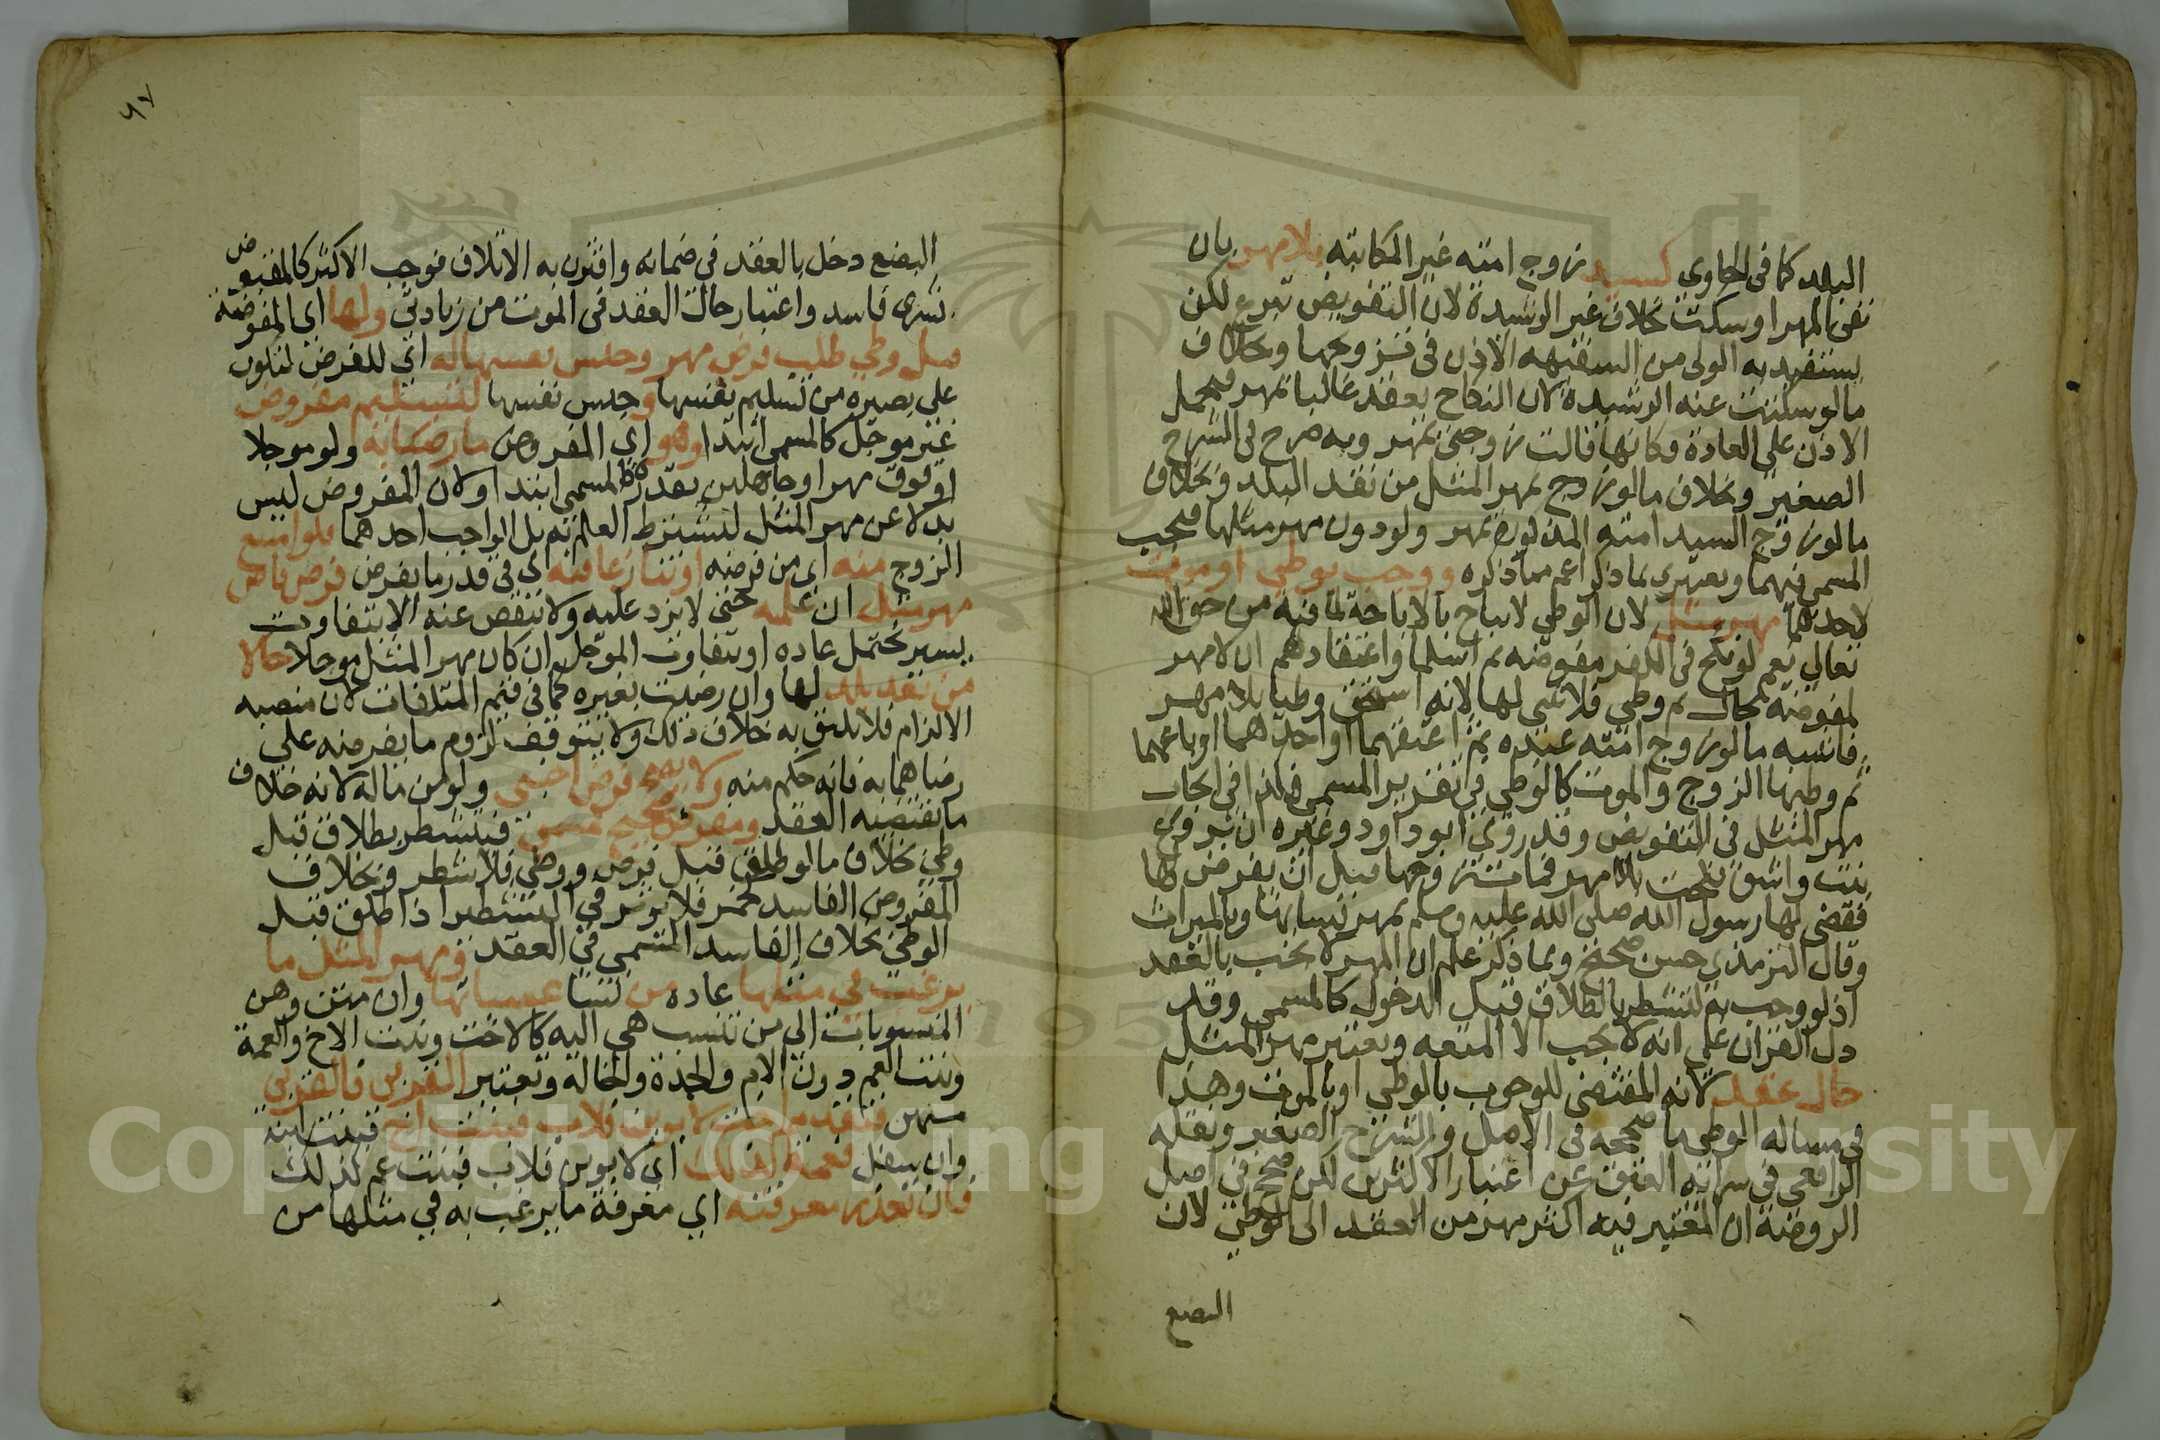 البلد كما في الحاوي كسيد زوج امته غير المكاتبة بلا مهر بان
نفى المهر او سكت بخلاف غير الرشيدة لان التفويض تبرع لكن
يستفيد به الولي من السفيهه الاذن في تزوجها وبخلاف
ما لو سكتت عنه الرشيدة لان النكاح يعقد غالبا بمهر فيحمل
الاذن على العادة وكانها قالت زوجني بمهر وبه صرح في الشرح
الصغير وبخلاف ما لو زوج بمهر المثل من نقد البلد وبخلاف
ما لو زوج السيد امته المذكورة بمهر ولو دون مهر مثلها فيجب
المسمى فيهما وتعبيري بما ذكر اعم مما ذكره ووجب بوطي او موت
لاحدهما مهر مثل لان الوطي لا يباح بالاباحة لما فيه من حق الله
تعالى نعم لو نكح في الكفر مفوضه ثم اسلما واعتقادهم ان لا مهر
لمفوضة بحال ثم وطي فلا شي لها لانه استحق وطيا بلا مهر
فاشبه ما لو زوج امته عبده ثم اعتقهما او احدهما او باعهما
ثم وطيها الزوج والموت كالوطي في تقرير المسمى فكذا في ايجاب
مهر المثل في التفويض وقد روى ابو داود وغيره ان بروع
بنت واشق نكحت بلا مهر فمات زوجها قبل ان يفرض لها
فقضى لها رسول الله صلى الله عليه وسلم بمهر نسايها وبالميراث
وقال الترمذي حسن صحيح وبما ذكر علم ان المهر لا يجب بالعقد
اذ لو وجب به لتشطر بالطلاق قبل الدخول كالمسمى وقد
دل القران على انه لا يجب الا المتعه ويعتبر مهر المثل
حال عقد لانه المقتضي للوجوب بالوطي او بالموت وهذا
في مساله الوطي ما صححه في الاصل والشرح الصغير ونقله
الرافعي في سراية العتق عن اعتبار الاكثرين لكن صحح في اصل
الروضة ان المعتبر فيه اكثر مهر من العقد الى الوطي لان
البضع
٩٧
البضع دخل بالعقد في ضمانه واقترن به الاتلاف فوجب الاكثر كالمقبوض
بشرى فاسد واعتبار حال العقد في الموت من زيادتي ولها اي المفوضة
قبل وطي طلب فرض مهر وحبس نفسها له اي للفرض لتكون
على بصيره من تسليم نفسها وحبس نفسها لتسليم مفروض
غير موجل كالمسمى ابتدا وهو اي المفروض ما رضيا به ولو موجلا
او فوق مهر او جاهلين بقدره كالمسمى ابتدا ولان المفروض ليس
بدلا عن مهر المثل ليشترط العلم به بل الواجب احدهما فلو امتنع
الزوج منه اي من فرضه او تنازعا فيه اي في قدر ما يفرض فرض قاض
مهر مثل ان علمه حتى لا يزد عليه ولا ينقص عنه الا بتفاوت
يسير يحتمل عاده او بتفاوت الموجل ان كان مهر المثل موجلا حالا
من نقد بلد لها وان رضيت بغيره كما في قيم المتلفات لان منصبه
الالزام فلا يليق به خلاف ذلك ولا يتوقف لزوم ما يفرضه على
رضاهما به فانه حكم منه ولا يصح فرض اجنبي ولو من ماله لانه خلاف
ما يقتضيه العقد ومفروض صحيح كمسمى فيتشطر بطلاق قبل
وطي بخلاف ما لو طلق قبل فرض ووطي فلا تشطر وبخلاف
المفروض الفاسد كخمر فلا يوثر في التشطير اذا طلق قبل
الوطي بخلاف الفاسد المسمى في العقد ومهر المثل ما
يرغب في مثلها عاده من نسا عصباتها وان متن وهن
المنسوبات الى من تنسب هي اليه كالاخت وبنت الاخ والعمة
وبنت العم دون الام والجدة والخالة وتعتبر القربى فالقربى
منهن فتقدم اخت لابوين فلاب فبنت اخ فبنت ابنه
وان سفل فعمة كذلك اي لابوين فلاب فبنت عم كذلك
فان تعذر معرفته اي معرفة ما يرغب به في مثلها من